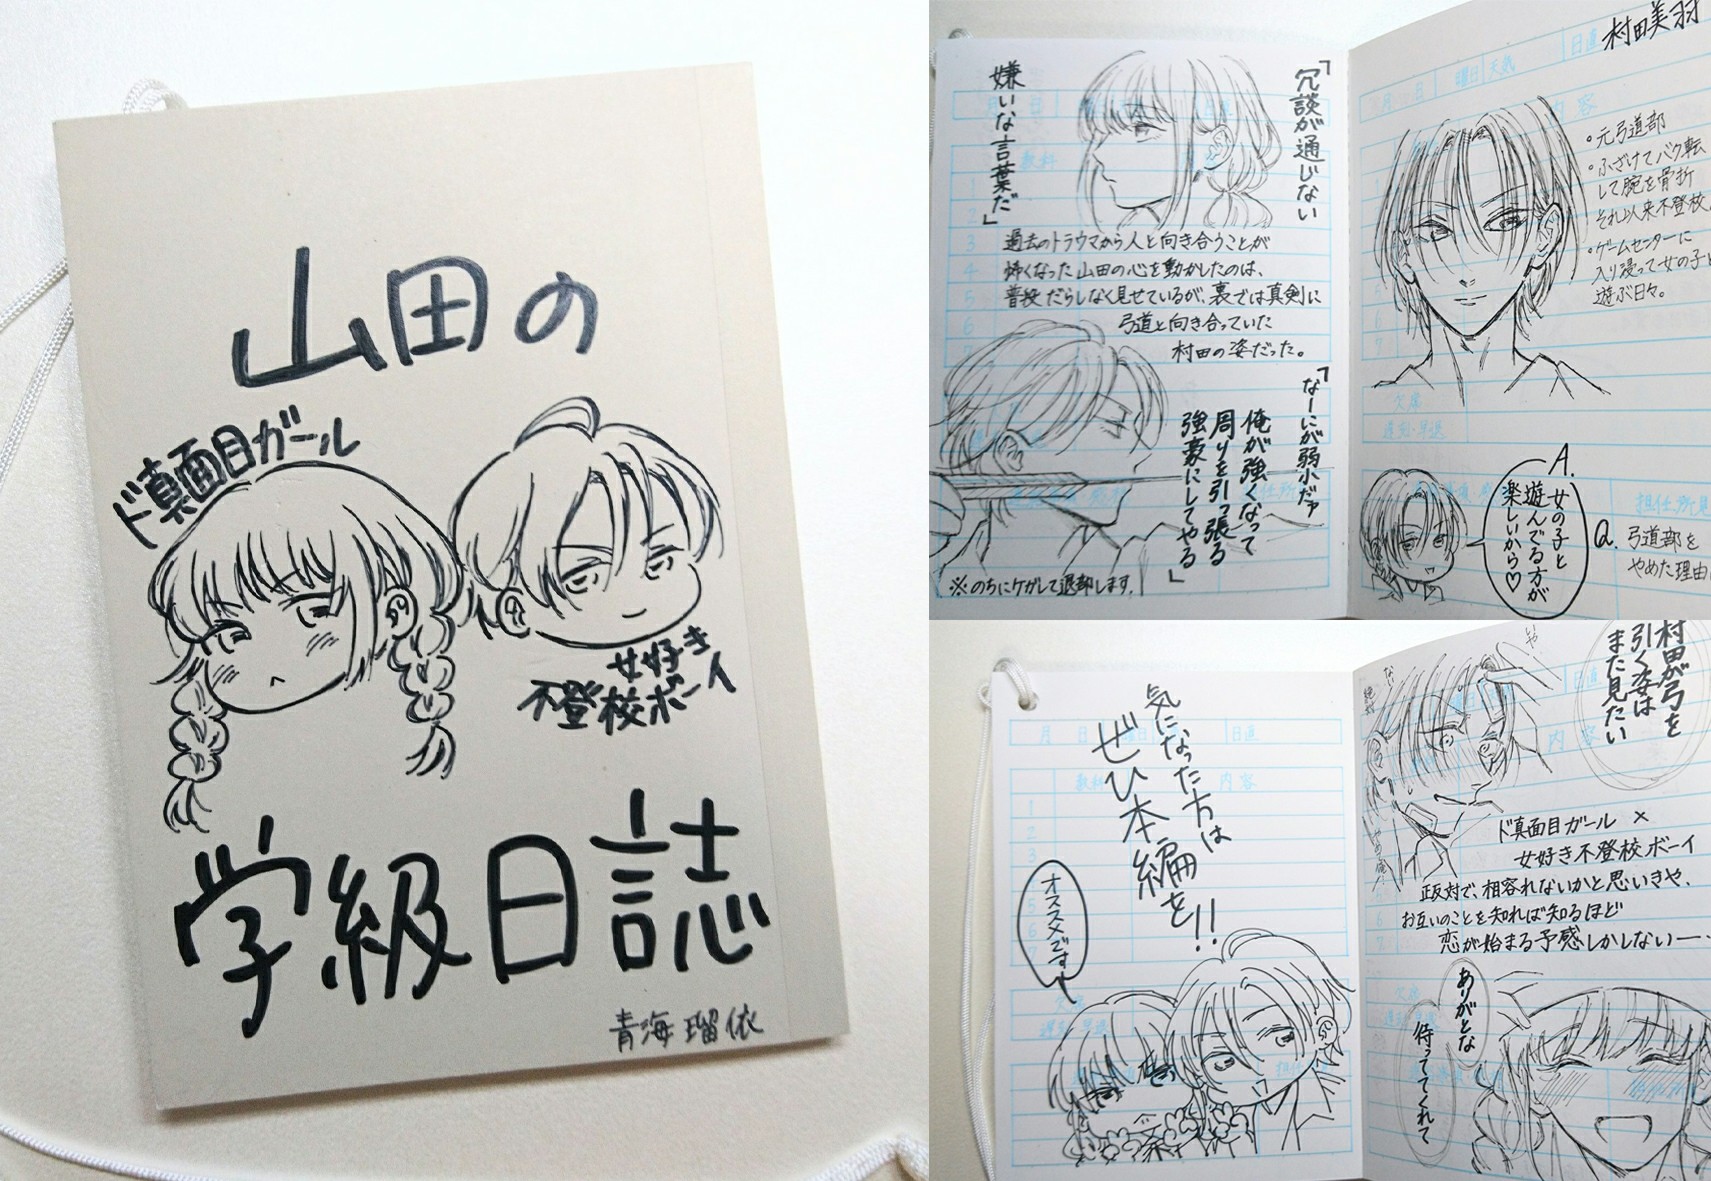 山田の
ド真面目ガール
女好き
不登校ボーイ
学級日誌
青海瑠依
「冗談が通じない
嫌いな言葉だ」
過去のトラウマから人と向き合うことが
怖くなった山田の心を動かしたのは、
普段だらしなく見せているが、裏では真剣に
弓道と向き合っていた
村田の姿だった。
「なーにが弱小だァ
俺が強くなって
周りを引っ張る
強豪にしてやる」
※のちにケガして退部します.
日直
村田美羽
月 日 曜日 天気
内容
・元弓道部
・ふざけてバク転
して腕を骨折
それ以来不登校
・ゲームセンターに
入り浸って女の子と
遊ぶ日々。
欠席
遅刻・早退
担任所見
Q.弓道部を
やめた理由
A.女の子と
遊んでる方が
楽しいから♡
気になった方は
ぜひ本編を!!
オススメです
月 日
日直
教科
内容
1
2
3
5
6
7
欠席
遅刻・早退
村田が弓を
引く姿は
また見たい
ド真面目ガール ×
女好き不登校ボーイ
正反対で、相容れないかと思いきや、
お互いのことを知れば知るほど
恋が始まる予感しかしないー
ありがとな
待っててくれて